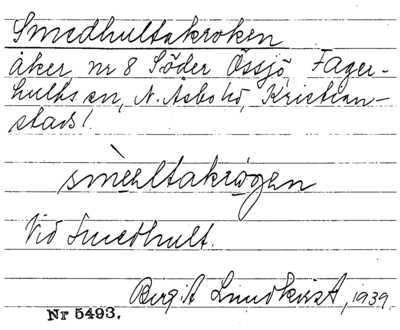 Smedhultakroken
åker, nr 8 Söder Össjö, Fager-
hults sn, N. Åsbo hd, Kristian-
stads l.
Vid Smedhult.
Birgit Lundkvist, 1939.
Nr 5493.